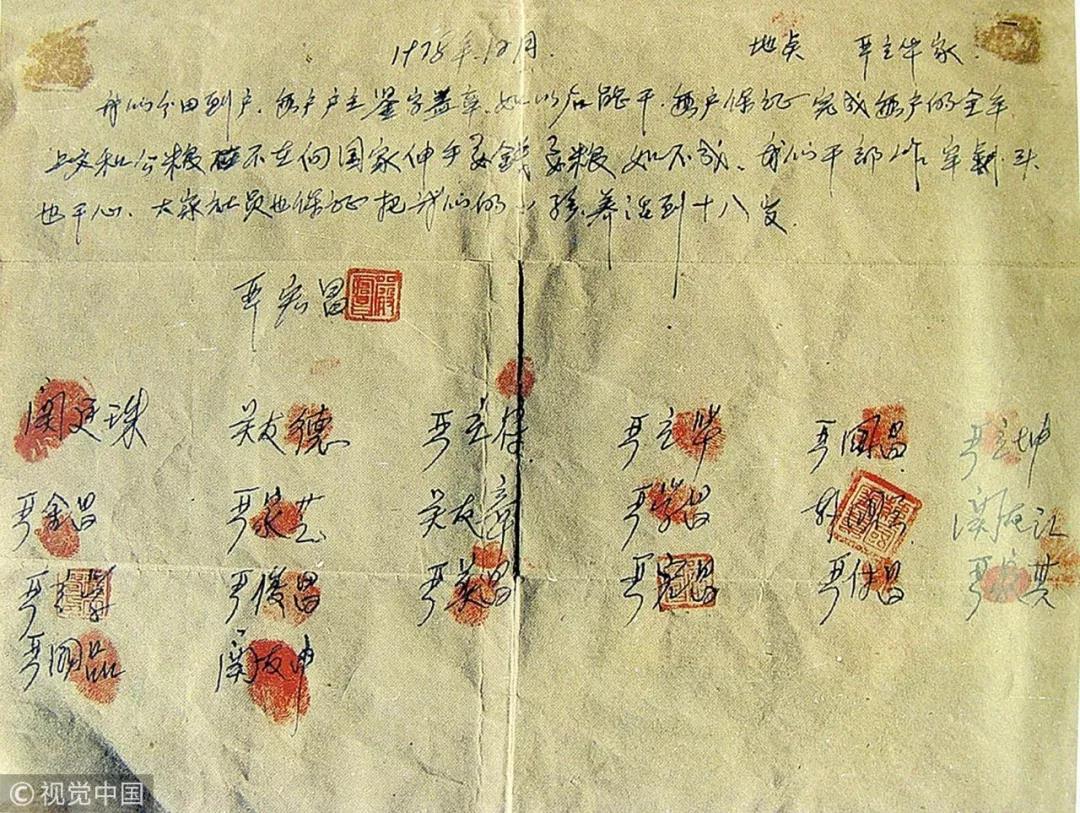 1978年12月. 地点 严立华家.
我们分田到户,每户户主签字盖章,如以后能干,每户保证完成每户的全年
上交和公粮,不在向国家伸手要钱要粮,如不成,我们干部作牢刹头
也干心,大家社员也保证把我们的小孩养活到十八岁.
严宏昌
关廷珠 关友德 严立符 严立华 严国昌 严立坤
严金昌 严家芝 关友章 严学昌 韩国云 关友江
严立学 严俊昌 严美昌 严宏昌 严付昌 严家其
严国品 关友申
©视觉中国